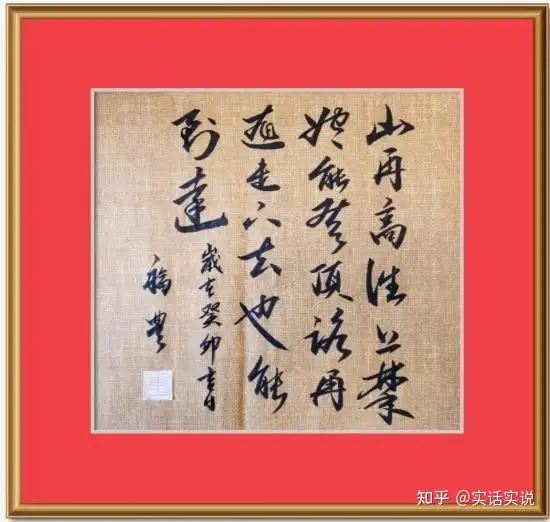 山再高往上攀
始能登顶路再
遥走下去也能
到達
歲在癸卯吉日
知乎 @实话实说